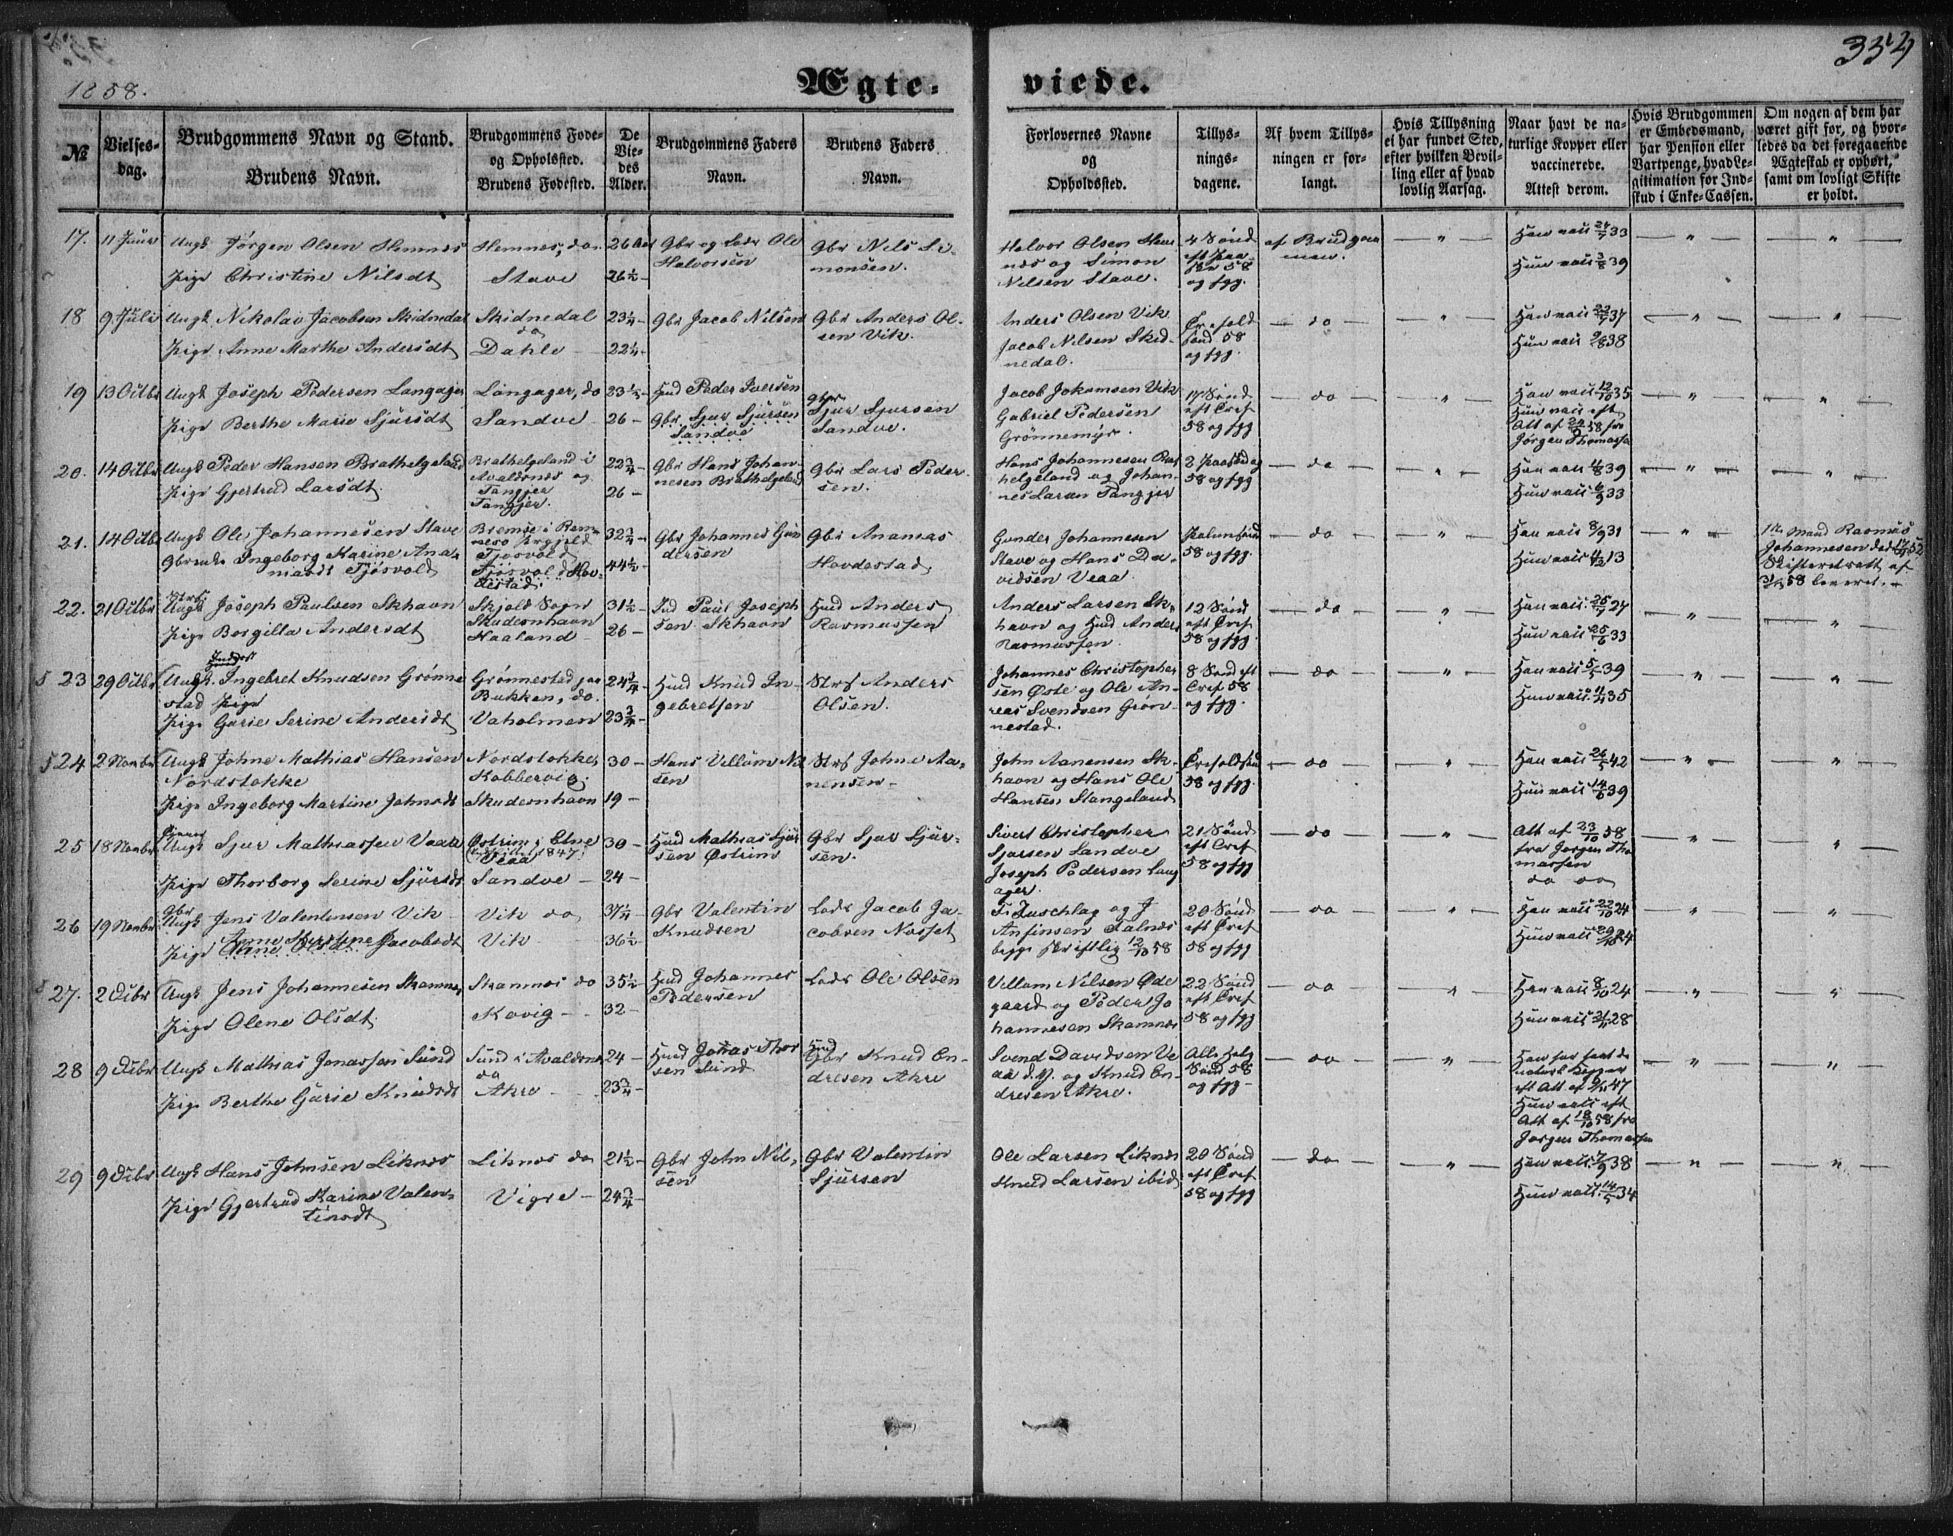 1858.
Ægte-
viede.
№
Vielses-
dag.
Brudgommens Navn og Stand.
Brudens Navn.
Brudgommens Føde-
og Opholdssted.
Brudens Fødested.
De
Vie-
des
Alder.
Brudgommens Faders
Navn.
Brudens Faders
Navn.
Forlovernes Navne
og
Opholdssted.
Tillys-
nings-
dagene.
Af hvem Tillys-
ningen er for-
langt.
Hvis Tillysning
ei har fundet Sted,
efter hvilken Bevil-
ling eller af hvad
lovlig Aarsag.
Naar havt de na-
turlige Kopper eller
vaccinerede.
Attest derom.
Hvis Brudgommen
er Embedsmand,
har Pension eller
Vartpenge, hvad Le-
gitimation for Ind-
skud i Enke-Cassen.
Om nogen af dem har
været gift før, og hvor-
ledes da det foregaaende
Ægteskab er ophørt,
samt om lovligt Skifte
er holdt.
17.
Ungk Jørgen Olsen Hemnes
Pige Christine Nilsdt
Hemnes, do
Stave
26 Aar
26½
Gbr og Lods Ole
Halvorsen
Gbr Nils Si-
monsen.
Halvor Olsen Hem
nes og Simon
Nilsen Stave.
4 Sønd
eft Paa-
ske 58
og fgg.
af Brudgom
men.
Han vacc 33
Hun vacc 3/8 39
18
9 Juli
Ungk Nikolai Jacobsen Skidnedal
Pige Anne Marthe Andersdt
Skidnedal
do
Dahle
23¼
22¼
Gbr Jacob Nilsen
Gbr Anders Ol-
sen Vik.
Anders Olsen Vik
Jacob Nilsen Skid-
nedal.
58
og fgg.
do
Han vacc 37
Hun vacc 38
19
13 Octbr
Ungk Joseph Pedersen Langager
Pige Berthe Marie Sjursdt
Langager, do
Sandve
23½
26
Hmd Peder Iversen
Gbr Sjur Sjursen
Sandve
Gbr
Sjur Sjursen
Sandve.
Jacob Jokumsen Vik
Gabriel Pedersen
Grønnemyr.
17 Sønd
eft Tref
58 og fgg
do
Han vacc 12/10 35
Hun vacc eft
Att af 58 fra
Jørgen Thomassen
20.
14 Octbr
Ungk Peder Hansen Brathelgeland
Pige Gjertrud Larsdt.
Brathelgeland i
Avaldsnes og
Tangjer
Tangjer.
22¾
26
Gbr Hans Johan-
nesen Brathelgeland
Gbr Lars Peder-
sen.
Hans Johannesen Brat
helgeland og Johan-
nes Larsen Tangjer
58 og fgg
do
Han vacc 39
Hun vacc 33
21.
14 Octbr
Ungk Ole Johannesen Stave
Gbrenke Ingeborg Karine Ana-
niasdt Tjøsvold
Tjøsvold
Tjøsvold Hov-
destad.
32¾
44½
Gbr Johannes Gun
dersen
Gbr Ananias
Hovdestad
Gunder Johannesen
Stave og Hans Da-
vidsen Veaa
58 og fgg.
do
Han vacc 8/9 31
Hun vacc 13
1ste Mand Rasmus
Johannesen død 52
Skifteretsatt af
58 leveret.
22.
21 Octbr
Strs
Ungk Joseph Paulsen Skhavn
Pige Borgilla Andersdt
Skjold Sogn
Skudesnhavn
Haaland
31½
26
Ind Paul Joseph
sen Skhavn
Hmd Anders
Rasmussen
Anders Larsen Sk-
havn og Hmd Anders
Rasmussen
12 Sønd
eft Tref
58 og fgg.
do
Han vacc 25/7 27
Hun vacc 25/6 33
23
29 Octbr
Ungk. Ingebret Knudsen Grønne
stad Pige
Pige Garie Serine Andersdt
Grønnestad paa
Bukken, do.
Vaholmen
24¾
23¾
Hmd Knud In-
gebretsen
Strs Anders
Olsen.
Johannes Christopher
sen Øste og Ole An-
reas Svendsen Grøn-
nestad.
8 Sønd eft
Tref 58
og fgg.
do
Han vacc 5/5 39
Hun vacc 35
24
2 Novbr
Ungk Johne Mathias Hansen
Nordstokke
Pige Ingeborg Martine Johnsdt
Nordstokke,
Kobbervig.
Skudesnhavn
30
19
Hans Villum Nil
sen
Strs Johne Aa-
nensen
John Aanensen Sk-
havn og Hans Ole
Hansen Stangeland
58 og fgg.
do
Han vacc 26/5 42
Hun vacc 14/6 39
25
18 Novbr
Ungk Sjur Mathiassen Veaa
Pige Thorborg Serine Sjursdt
Østrim i Etne
1847
Veaa
Sandve
30
24
Hmd Mathias Sjur
sen Østrim
Gbr Sjur Sjur-
sen.
Sivert Christopher
Sjursen Sandve
Joseph Pedersen Lang
ager.
21 Sønd
eft Tref
58 og fgg
do
Att af 23/10 58
fra Jørgen Tho
massen
do do
26
19 Novbr
Gbr
Ungk Jens Valentinsen Vik
Pige Anne Jacobsdt
Vik do
Vik
37¼
36½
Gbr Valentin
Knudsen
Lods Jacob Ja-
cobsen Nesset
T. Zuschlag og J.
Anfinsen Falnes
begge skriftlig 12/10 58
20 Sønd
eft Tref
58 og fgg
do
Han vacc 22/10 24
Hun vacc 24
27.
2 Decbr
Ungk Jens Johannesen Skamnes
Pige Olene Olsdt.
Skamnes do
Kovig
35½
32
Hmd Johannes
Pedersen
Lods Ole Olsen
Villum Nilsen Øde
gaard og Peder Jo
hannesen Skamnes
22 Sønd
eft Tref
58 og fgg
do
Han vacc 8/10 24
Hun vacc 28
28
9 Decbr
Ungk Mathias Jonassen Sund
Pige Berthe Garie Knudsdt
Sund i Avaldsnes
do
Akre
24
23¾
Hmd Jonas Thor
sen Sund
Hmd
Gbr Knud En-
dresen Akre
Svend Davidsen Ve
aa d.y. og Knud En-
dresen Akre.
Alle Helg
Sønd 58
og fgg
do
Han har havt de
naturl Kopper
eft Att af 47
Hun vacc eft
Att af 18/10 58 fra
Jørgen Thomassen
29
9 Decbr
Ungk Hans Johnsen Liknes
Pige Gjertrud Karine Valen-
tinsdt
Liknes do
Vigre
21½
24¾
Gbr John Nil-
sen
Gbr Valentin
Sjursen
Ole Larsen Liknes
Knud Larsen ibid
20 Sønd
eft Tref
58 og fgg
do
Han vacc 38
Hun vacc 14/5 34